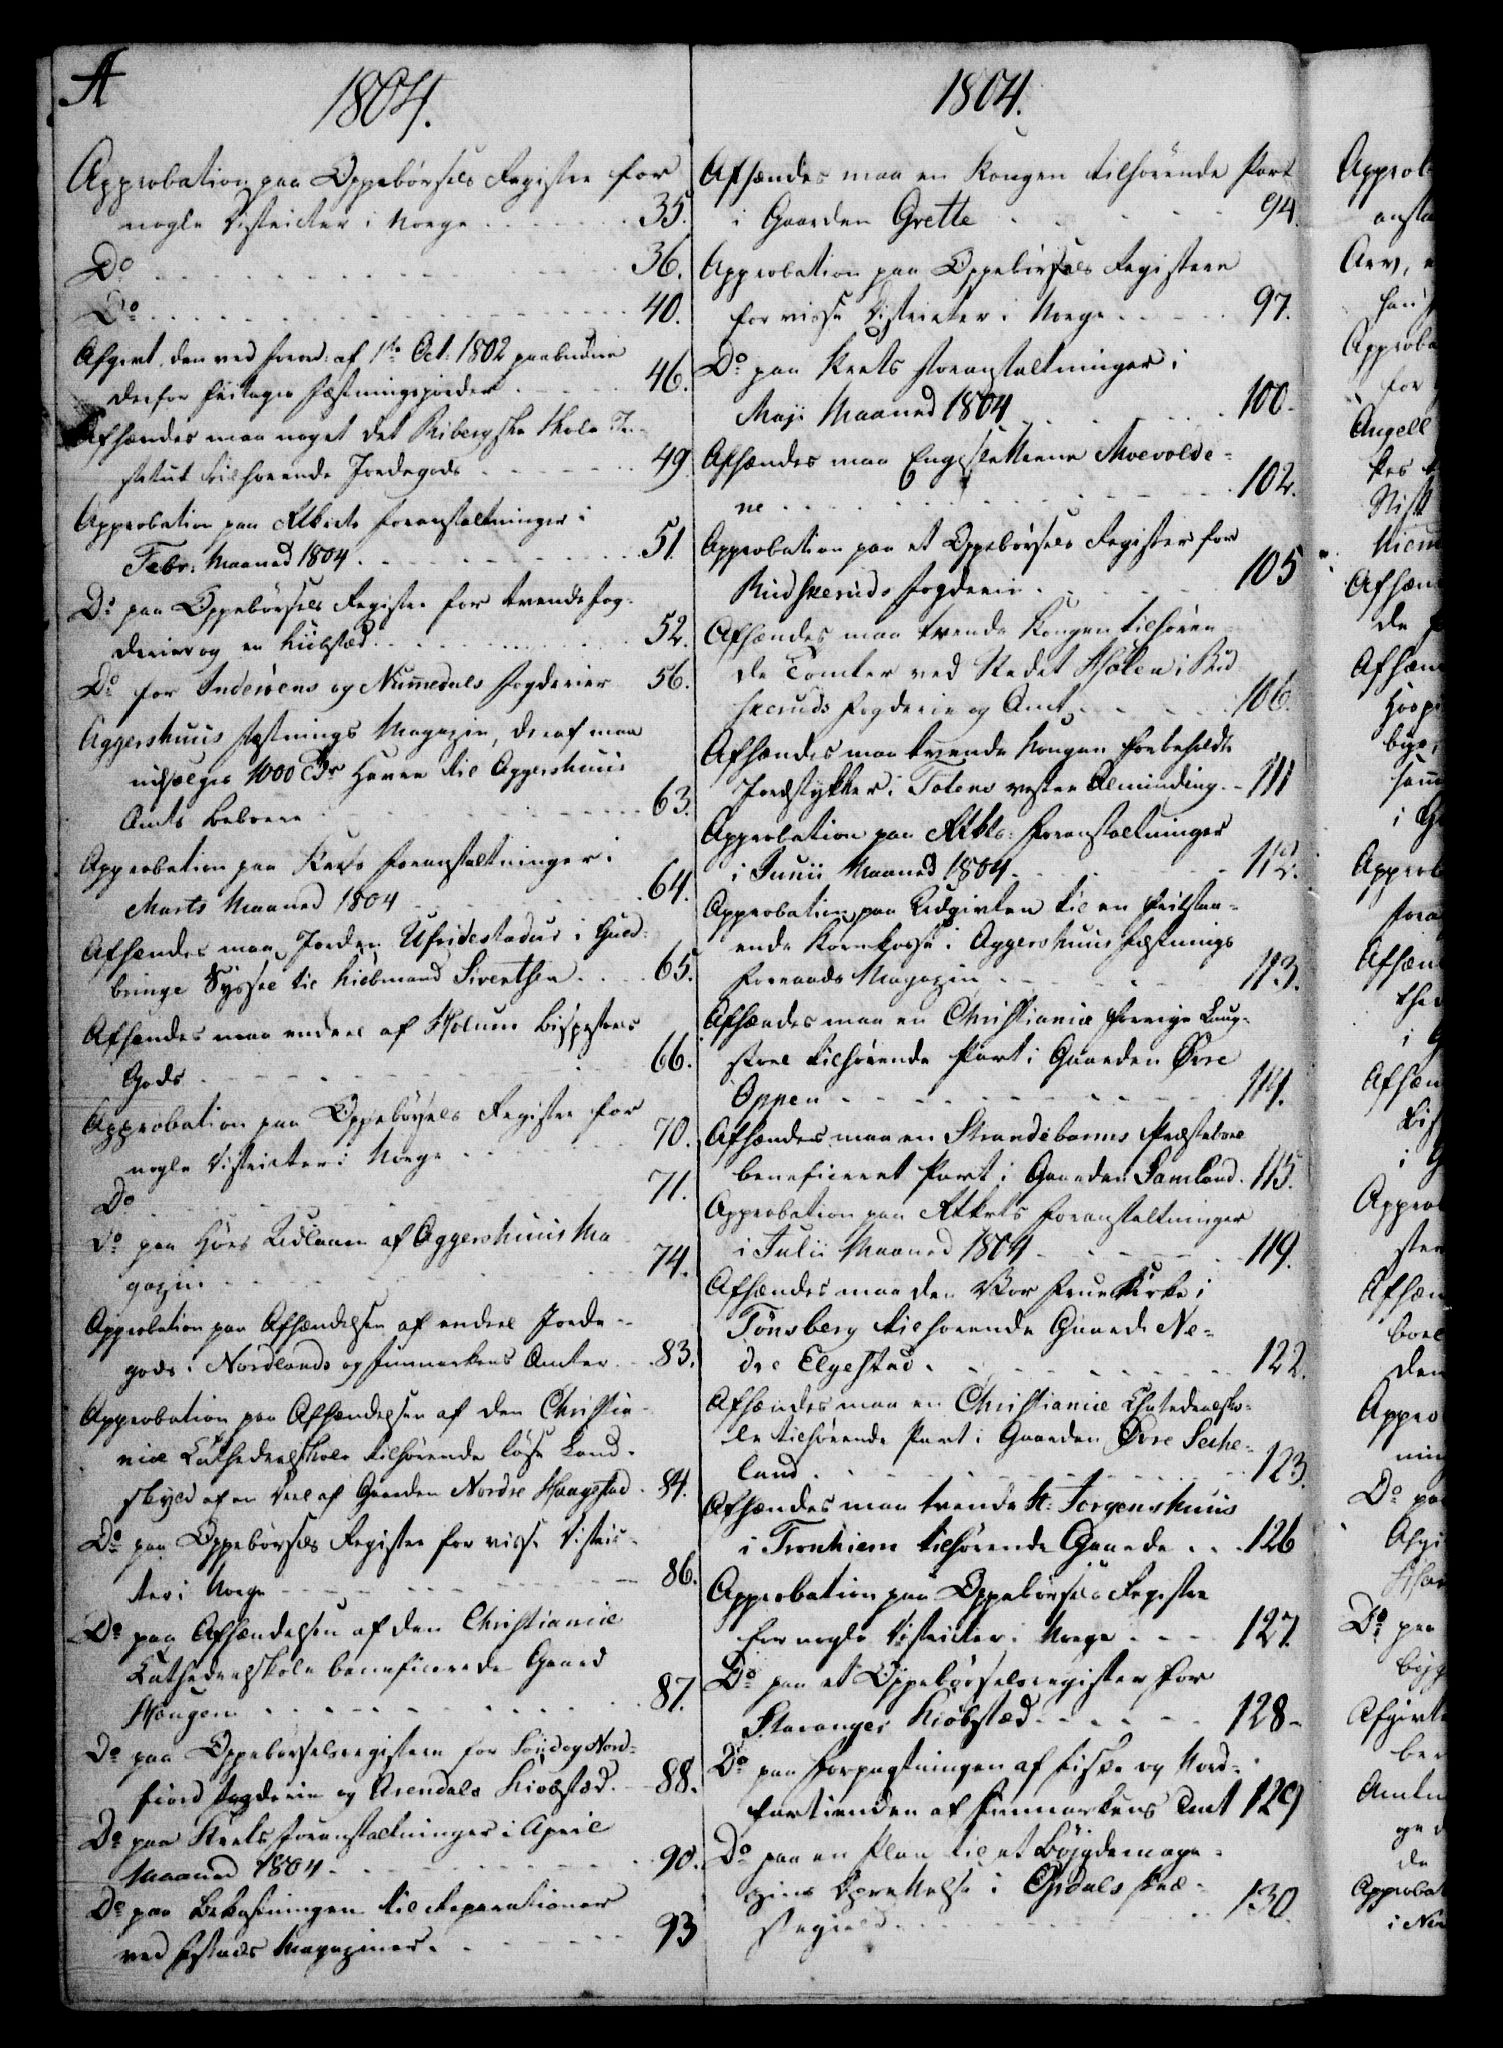 A
1804.
Approbation paa Oppebørsels Registre for
nogle Districter i Norge . . . . . . 35.
Do . . . . . . . . . . 36.
Do . . . . . . . . . . 40.
Afgivt, den ved Forord: af 1ste Oct: 1802 paabudne
derfor fritages Fæstningsjorder . . . . 46.
Afhændes maa noget det Ribergske Skole In-
stitut tilhørende Jordegods . . . . . 49.
Approbation paa Rtkrts Foranstaltninger i
Febr: Maaned 1804 . . . . . . . . 51.
Do paa Oppebørsels Registre for tvende Fog-
derier og en Kiøbstæd . . . . . . . 52.
Do for Inderøens og Numedals Fogderier 56.
Aggershuus Fæstnings Magazin, deraf maa
udsælges 1000 Tdr Havre til Aggershuus
Amts Beboere . . . . . . . . . . 63.
Approbation paa Rkrts Foranstaltninger i
Marts Maaned 1804 . . . . . . . . 64.
Afhændes maa Jorden Ufridestadur i Guld-
bringe Syssel til Kiøbmand Sivertsen . . . 65.
Afhændes maa endeel af Holum Bispestoels
Gods . . . . . . . . . . . . 66.
Approbation paa Oppebørsels Registre for
nogle Districter i Norge . . . . . . 70.
Do . . . . . . . . . . . . 71.
Do paa Høes Udlaan af Aggershuus Ma-
gazin . . . . . . . . . . . 74.
Approbation paa Afhændelsen af endeel Jorde-
gods i Nordlands og Finmarkens Amter . . 83.
Approbation paa Afhændelsen af den Christia-
niæ Cathedralskole tilhørende løse Land-
skyld af en Deel af Gaarden Nordre Haugstad . 84.
Do paa Oppebørsels Registre for visse Distric-
ter i Norge . . . . . . . . . . 86.
Do paa Afhændelsen af den Christianiæ
Cathedralskole beneficerede Gaard
Haugen . . . . . . . . . . . 87.
Do paa Oppebørselsregistere for Sønd og Nord-
fiord Fogderie og Arendals Kiøbstæd . . 88.
Do paa Rkrts Foranstaltninger i April
Maaned 1804 . . . . . . . . . . 90.
Do paa Bekostningen til Reparationer
ved Magaziner . . . . . . 93
1804.
Afhændes maa en Kongen tilhørende Part
i Gaarden Grette . . . . . . . 94.
Approbation paa Oppebørsels Registere
for visse Districter i Norge . . . . . 97.
Do paa Rkrts Foranstaltninger i
Maji Maaned 1804 . . . . . . . 100.
Afhændes maa Engesletterne Moevolde-
ne . . . . . . . . . . . . 102.
Approbation paa et Oppebørsels Register for
Budskeruds Fogderie . . . . . . 105
Afhændes maa tvende Kongen tilhøren-
de Tomter ved Stedet Holen i Bud-
skeruds Fogderie og Amt . . . . . . 106.
Afhændes maa tvende Kongen forbeholdte
Jordstykker i Totens vestre Alminding . . 111
Approbation paa Rtkts: Foranstaltninger
i Junii Maaned 1804 . . . . . . . 112.
Approbation paa Udgivten til en fritstaa-
ende Kornkasse i Aggershuus Fæstnings
Forraads Magazin . . . . . . . 113.
Afhændes maa en Christianiæ forrige Laug-
stoel tilhørende Part i Gaarden Øvre
Oppen . . . . . . . . . . . 114.
Afhændes maa en Strandebarms Præstebord
beneficeret Part i Gaarden Samland . 115.
Approbation paa Rtkrts Foranstaltninger
i Julii Maaned 1804 . . . . . . . 119.
Afhændes maa den Vor Frue Kirke i
Tønsberg tilhørende Gaard Ne-
dre Elgestad . . . . . . . . . 122.
Afhændes maa en Christianiæ Chatedralsko-
le tilhørende Part i Gaarden Øvre Seche-
land . . . . . . . . . . . 123.
Afhændes maa tvende St. Jørgenshuus
i Tronhiem tilhørende Gaarde . . . 126
Approbation paa Oppebørsels Registre
for nogle Districter i Norge . . . . 127.
Do paa et Oppebørselsregister for
Stavanger Kiøbstæd . . . . . . 128.
Do paa Forpagtningen af Fiske og Kord-
partienden af Finmarkens Amt 129
Do paa en Plan til et Bøygdemaga-
zins Oprettelse i Opdals Præ-
stegield . . . . . . . . . 130.
Approb
Arv,
Approba
for
Angell
Afhæn
de
Afhæn
i
Approb
Afhæn
i
Afhæn
i
Approb
Afhæn
den
Appro
Do paa
Do paa
Afgivt
ber
de
Approbat